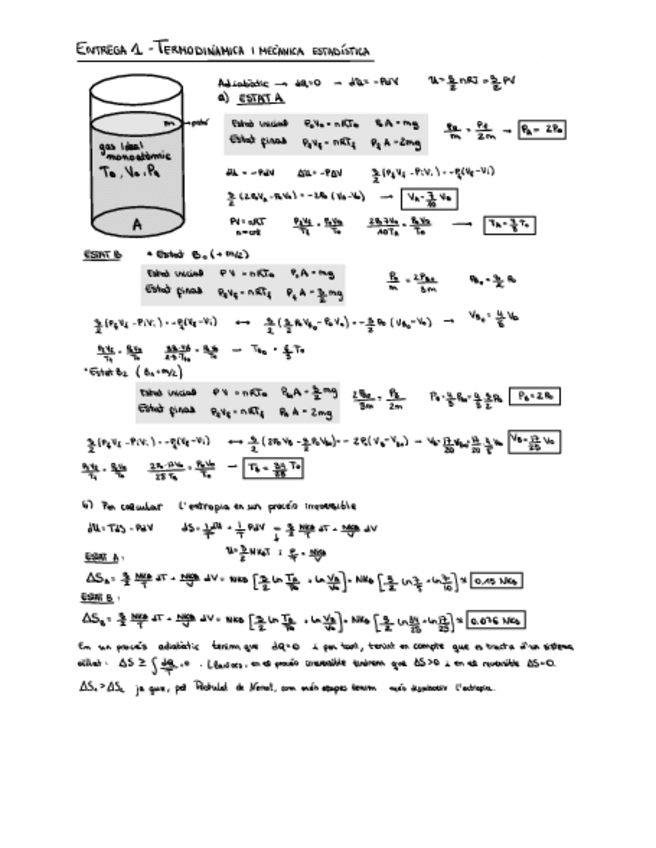 ENTREGA 1 - TERMODINÀMICA I MECÀNICA ESTADÍSTICA
Adiabàtic → dQ=0 → dU=-PdV U=3/2 nRT = 3/2 PV
a) ESTAT A
m → pistó
gas ideal
monoatòmic
T₀, V₀, P₀
A
Estat inicial P₀V₀ = nRT₀ P₀A = mg
Estat final PfVf = nRTf PfA = 2mg
P₀/m = Pf/2m → PA = 2P₀
dU = -PdV ΔU = -PΔV 3/2 (PfVf - PiVi) = -Pf(Vf-Vi)
3/2 (2P₀VA - P₀V₀) = -2P₀ (VA-V₀) → VA = 7/10 V₀
PV = nRT
n = cte
PfVf/Tf = P₀V₀/T₀ 2P₀7V₀/10TA = P₀V₀/T₀ → TA = 7/5 T₀
ESTAT B • Estat B₀ (+m/2)
Estat inicial PV = nRT₀ P₀A = mg
Estat final PfVf = nRTf PfA = 3/2 mg
P₀/m = 2PB₀/3m PB₀ = 3/2 P₀
3/2 (PfVf - PiVi) = -Pf(Vf-Vi) ↔ → VB₀ = 4/5 V₀
PfVf/Tf = P₀V₀/T₀ → TB₀ = 6/5 T₀
Estat inicial PV = nRT₀ PB₀A = 3/2 mg
Estat final PfVf = nRTf PBA = 2mg
2PB₀/3m = PB/2m PB = 2P₀
3/2 (PfVf - PiVi) = -Pf(Vf-Vi) ↔ 3/2 (2P₀VB - 3/2 P₀VB₀) = -2P₀(VB-VB₀) → VB = 17/25 V₀
PfVf/Tf = P₀V₀/T₀ 2P₀·17V₀/25TB = P₀V₀/T₀ → TB = 34/25 T₀
b) Per calcular l'entropia en un procés irreversible
dU = TdS - PdV dS = 1/T dU + 1/T PdV = 3/2 NKB/T dT + NKB/V dV
U = 3/2 NKBT ; P/T = NKB/V
ESTAT A:
ΔSA = 3/2 NKB/T dT + NKB/V dV = NKB [3/2 ln TA/T₀ + ln VA/V₀] = NKB [3/2 ln 7/5 + ln 7/10] ≈ 0.15 NKB
ESTAT B:
ΔSB = 3/2 NKB/T dT + NKB/V dV = NKB [3/2 ln TB/T₀ + ln VB/V₀] = NKB [3/2 ln 34/25 + ln 17/25] ≈ 0.076 NKB
En un procés adiabàtic tenim que dQ=0 i per tant, tenint en compte que es tracta d'un sistema
aïllat: ΔS ≥ ∫ dQ/T = 0. Llavors, en es procés irreversible tindrem que ΔS>0 i en es reversible ΔS=0.
ja que, pel Postulat de Nernst, com més etapes tenim més disminueix l'entropia.